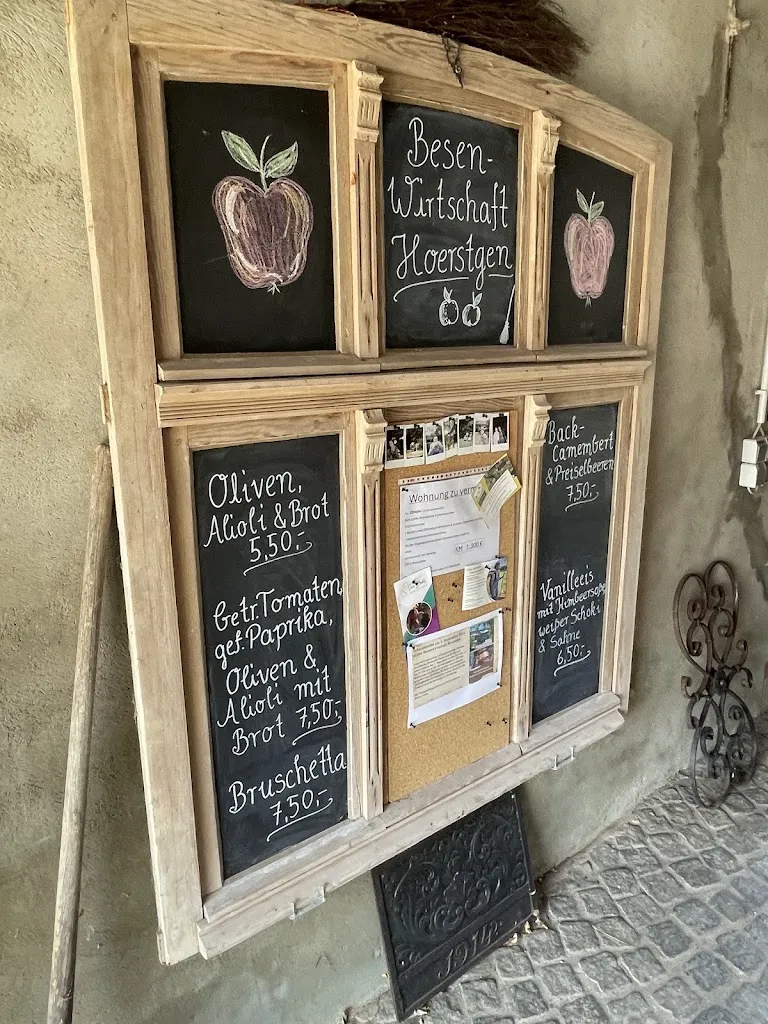 Besen-
Wirtschaft
Hoerstgen
Oliven,
Alioli & Brot
5,50,-
Getr. Tomaten,
gef. Paprika,
Oliven &
Alioli mit
Brot 7,50,-
Bruschetta
7,50,-
Wohnung zu verm
KM 1.300 €
Back-
Camembert
& Preiselbeeren
7,50,-
Vanilleeis
mit Himbeersoße
weißer Schoki
& Sahne
6,50,-
1914